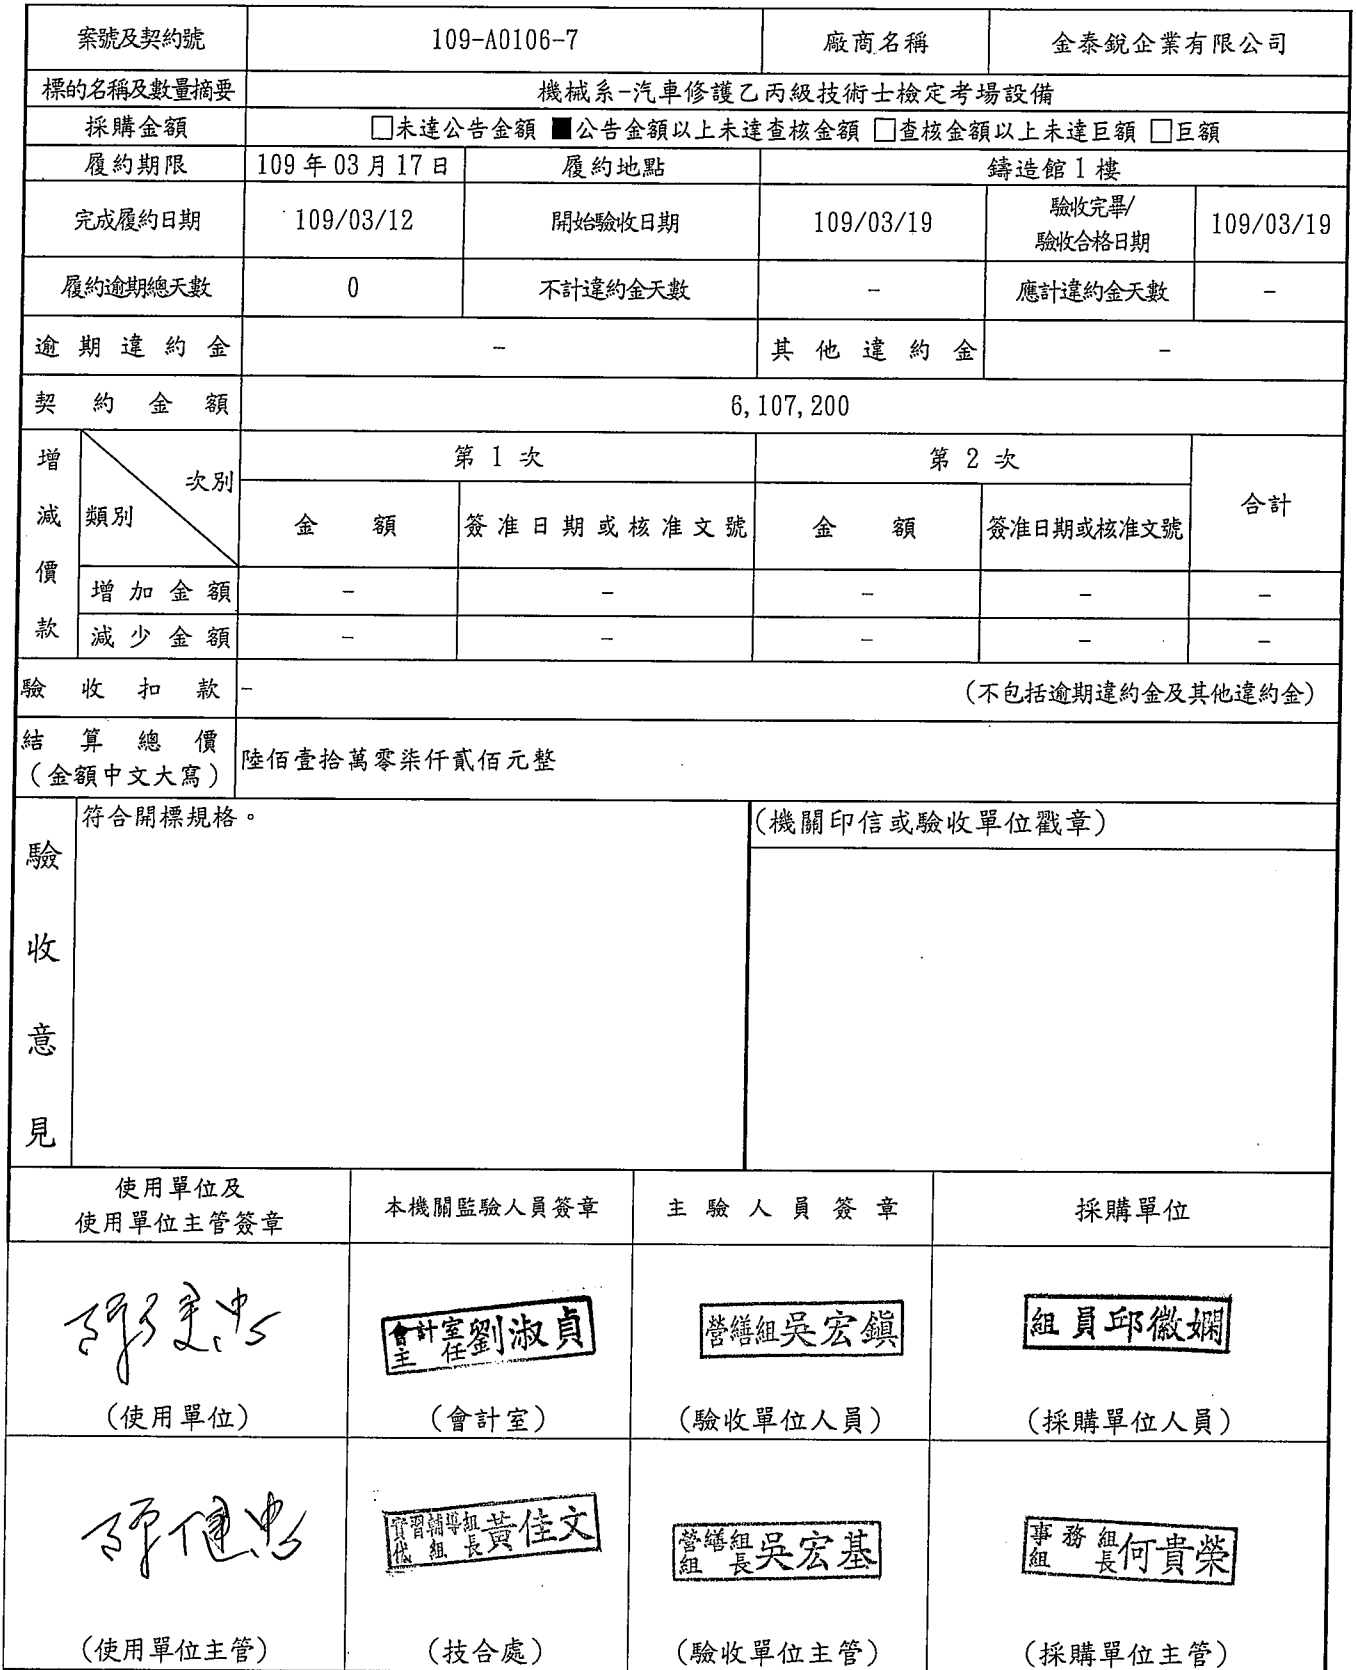 案號及契約號 109-A0106-7 廠商名稱 金泰銳企業有限公司
標的名稱及數量摘要 機械系-汽車修護乙丙級技術士檢定考場設備
採購金額 □未達公告金額 ■公告金額以上未達查核金額 □查核金額以上未達巨額 □巨額
履約期限 109年03月17日 履約地點 鑄造館1樓
完成履約日期 109/03/12 開始驗收日期 109/03/19 驗收完畢/
驗收合格日期 109/03/19
履約逾期總天數 0 不計違約金天數 - 應計違約金天數 -
逾期違約金 - 其他違約金 -
契約金額 6,107,200
增減價款 次別 第 1 次 第 2 次 合計
類別 金額 簽准日期或核准文號 金額 簽准日期或核准文號
增加金額 - - - - -
減少金額 - - - - -
驗收扣款 - (不包括逾期違約金及其他違約金)
結算總價
(金額中文大寫) 陸佰壹拾萬零柒仟貳佰元整
驗收意見 符合開標規格。 (機關印信或驗收單位戳章)
使用單位及
使用單位主管簽章 本機關監驗人員簽章 主驗人員簽章 採購單位
會計室主任劉淑貞 營繕組吳宏鎮 組員邱徽嫻
(使用單位) (會計室) (驗收單位人員) (採購單位人員)
實習輔導組組長黃佳文 營繕組組長吳宏基 事務組組長何貴榮
(使用單位主管) (技合處) (驗收單位主管) (採購單位主管)